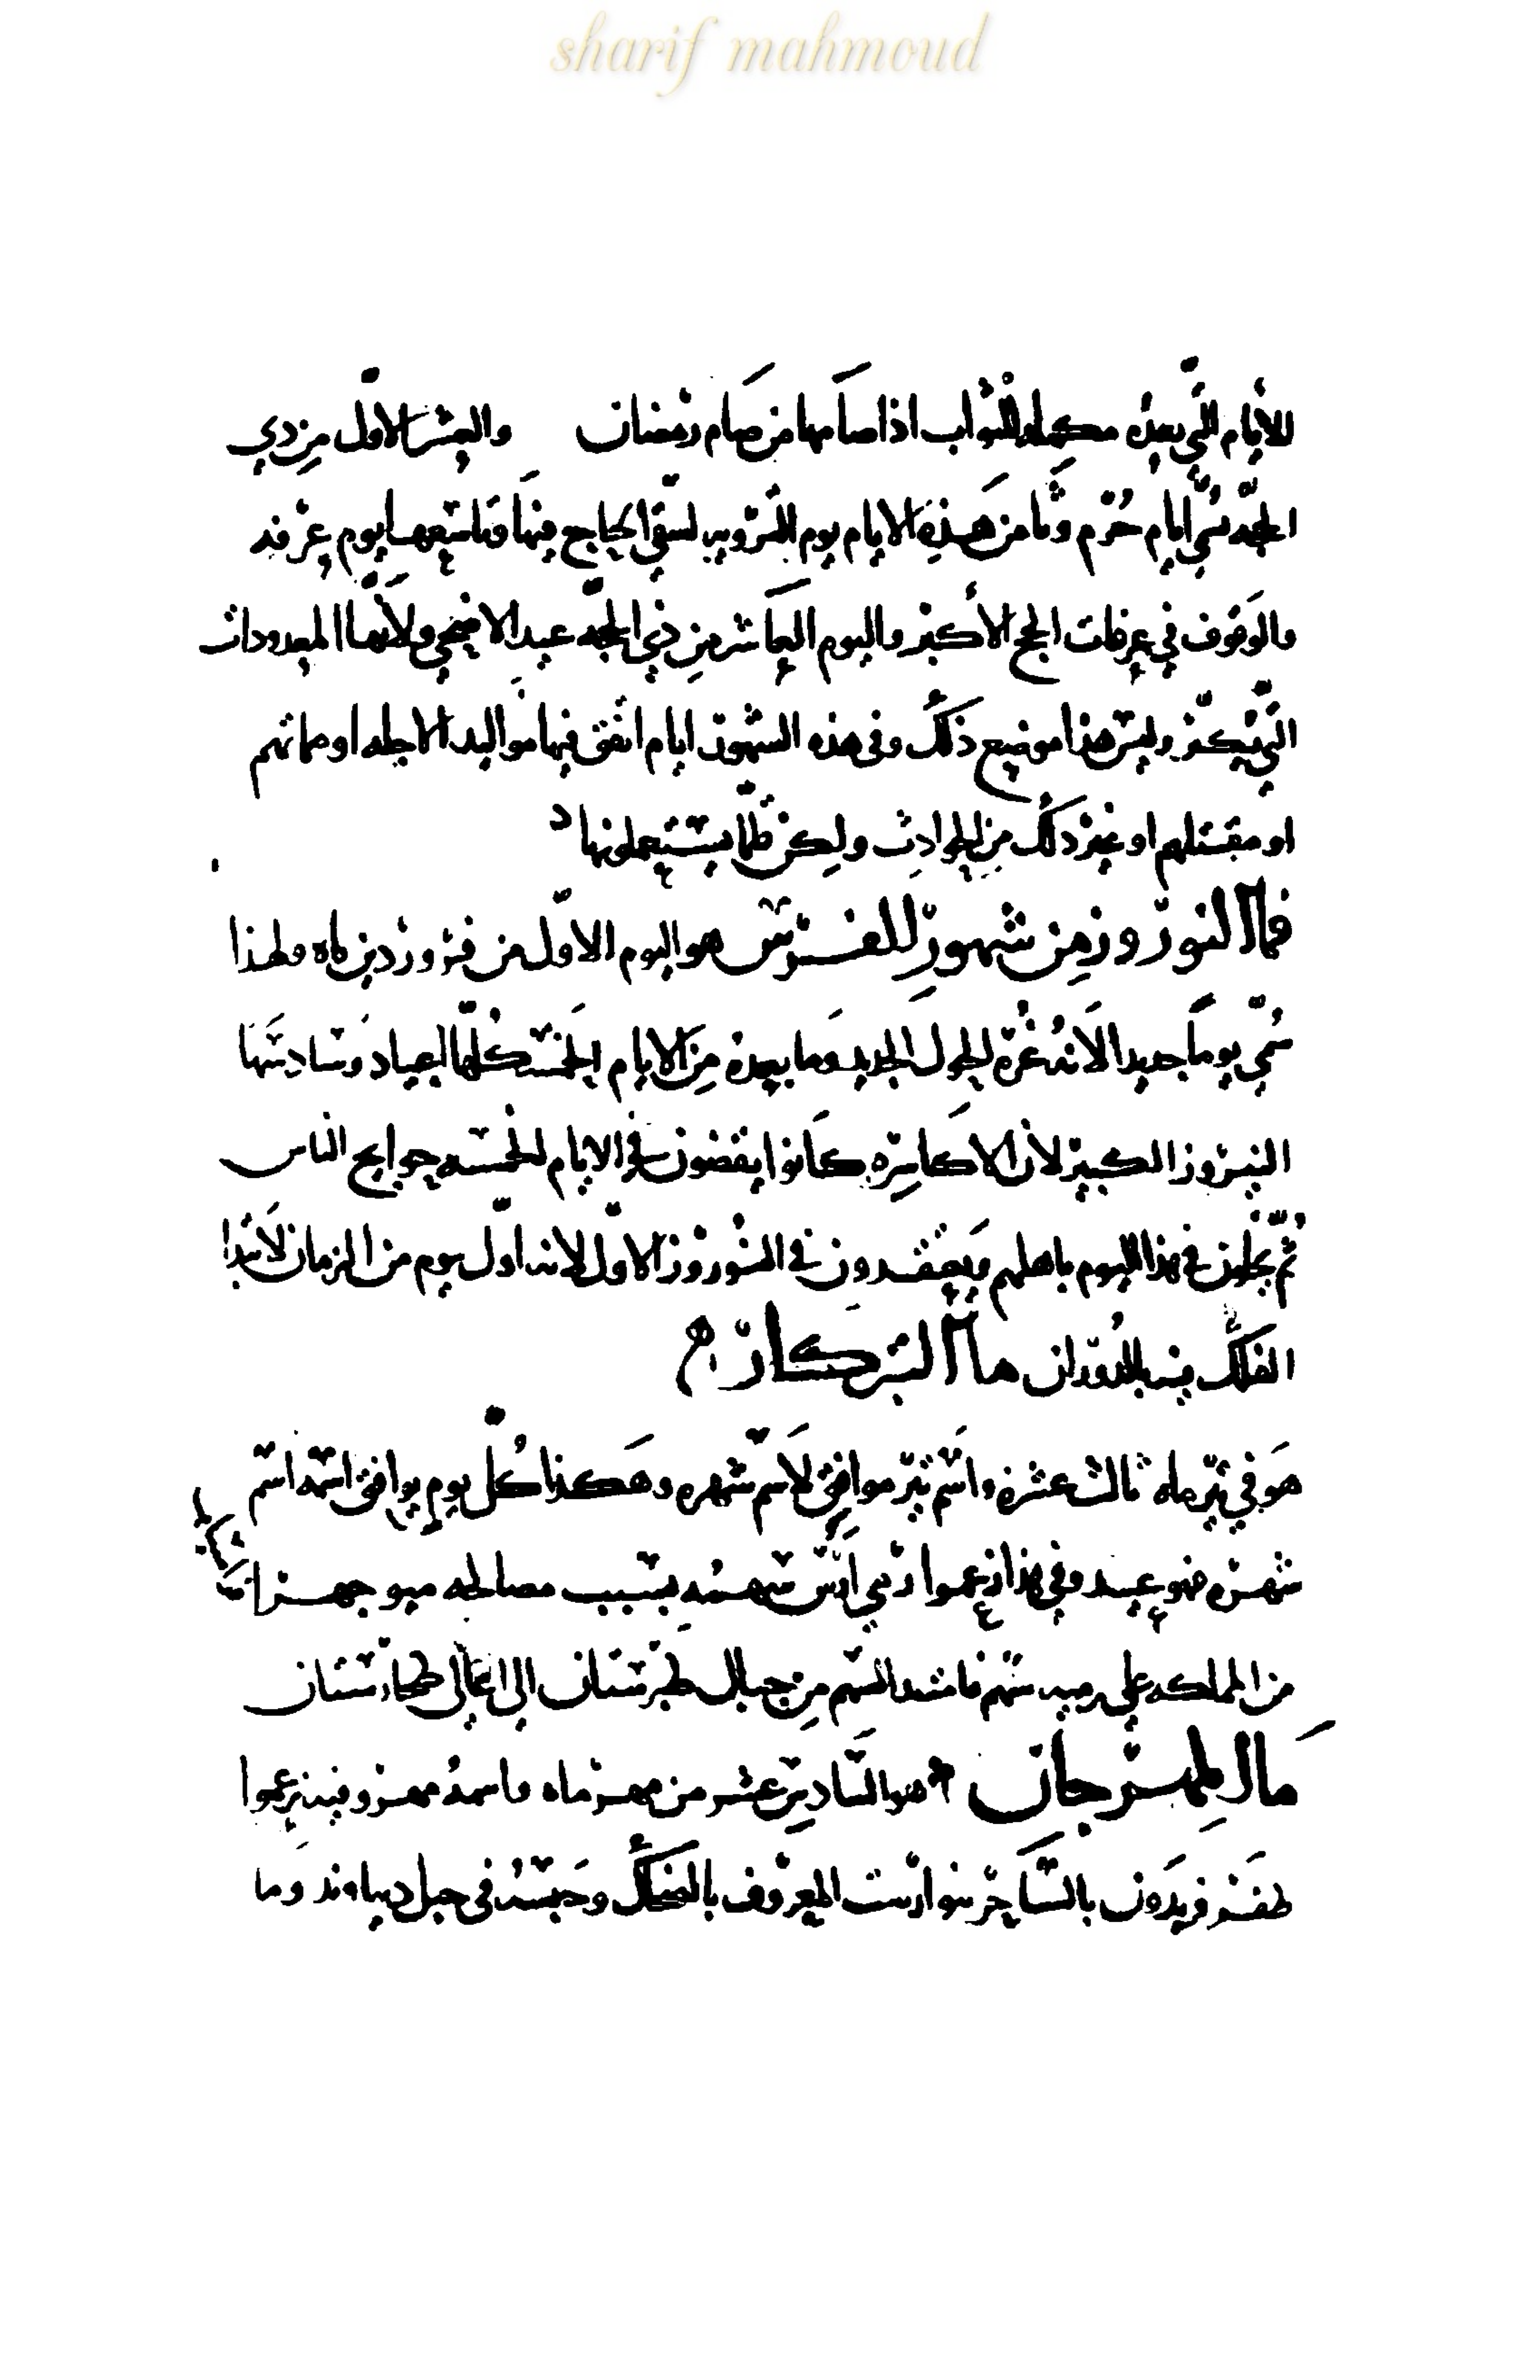 sharif mahmoud
للأيام التي بعده مكملة للثواب اذا صامها من صام رمضان والعشر الأول من ذي
الحجه تسمى ايام حرم وثامن هذه الايام يوم الترويه لسقى الحاج فيها وتاسعها يوم عرفه
والوقوف في عرفات الحج الأكبر واليوم العاشر من ذي الحجه عيد الاضحى ولأنها المعدودات
التي وليس هذا موضع ذلك وفى هذه الشهور ايام اتفق فيها مواليد الاجله او مماتهم
او مقتلهم او غير ذلك من الحوادث ولكن قلما يستعملونها
فما النوروز من شهور الفرس هو اليوم الاول من فروردين ماه ولهذا
سمي يوما جديدا لانه غرة الحول الجديد وما بعده من الايام الخمسة كلها اعياد وسادسها
النيروز الكبير لأن الاكاسره كانوا يقضون في الايام الخمسه حوايج الناس
ثم يخلون في هذا اليوم باهلهم ويعتقدون في النوروز الاول لانه اول يوم من الزمان لابتدا
الفلك فيه بالدوران ما التيركان
هو في تير ماه ثالث عشره واسم تير موافق لاسم شهره وهكذا كل يوم يوافق اسمه اسم
شهره فهو عيد وفي هذا زعموا رمي ارش سهمه بسبب مصالحه منوجهر
من المملكه على رميه سهم فامتد السهم من جبال طبرستان الى اعالي طخارستان
ما المهرجان هو السادس عشر من مهر ماه واسمه مهر وفيه زعموا
ظفر فريدون بالساحر بيوارست المعروف بالضحاك وحبسه في جبل دنباوند وما